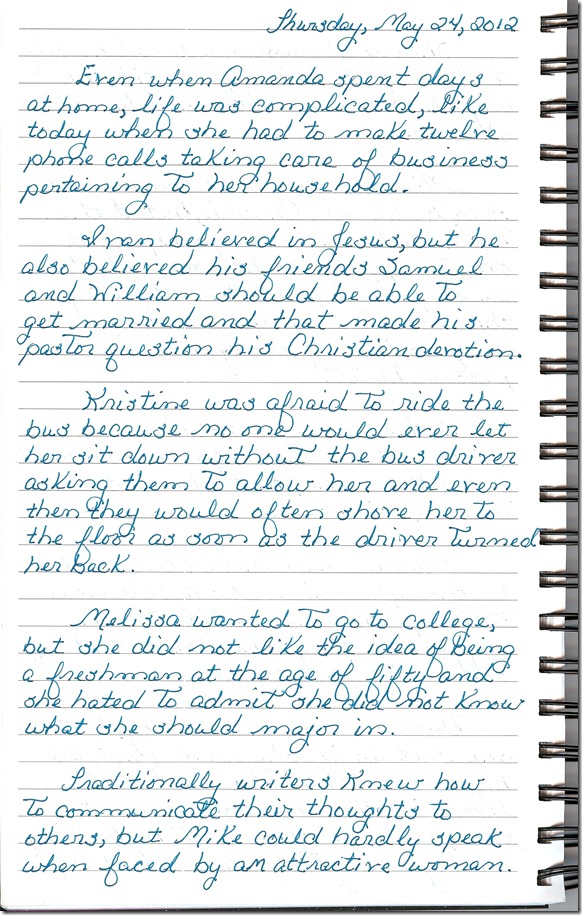 Thursday, May 24, 2012
Even when Amanda spent days
at home, life was complicated, like
today when she had to make twelve
phone calls taking care of business
pertaining to her household.
Ivan believed in Jesus, but he
also believed his friends Samuel
and William should be able to
get married and that made his
pastor question his Christian devotion.
Kristine was afraid to ride the
bus because no one would ever let
her sit down without the bus driver
asking them to allow her and even
then they would often shove her to
the floor as soon as the driver turned
her back.
Melissa wanted to go to college,
but she did not like the idea of being
a freshman at the age of fifty and
she hated to admit she did not know
what she should major in.
Traditionally writers knew how
to communicate their thoughts to
others, but Mike could hardly speak
when faced by an attractive woman.